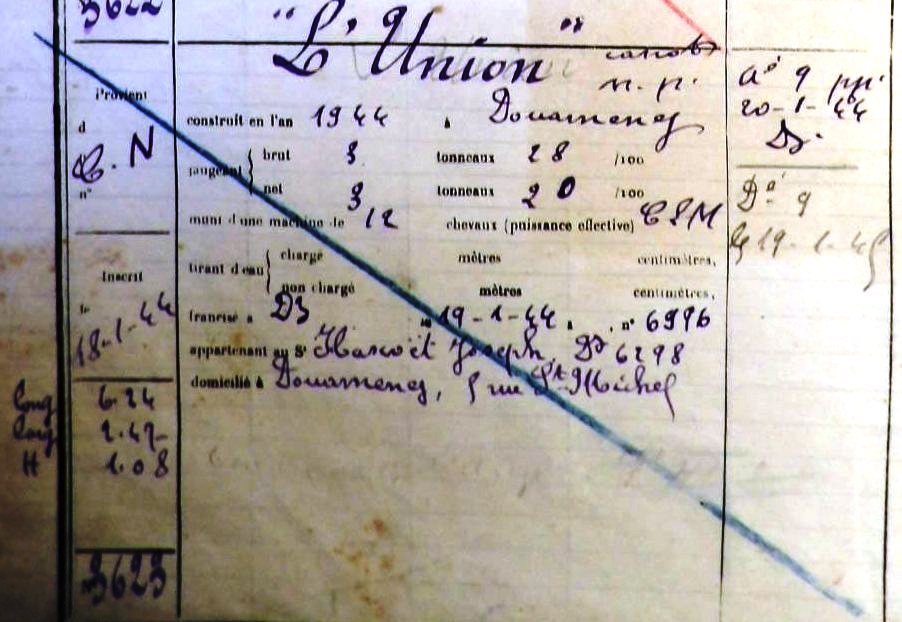 3622
"L'Union" canot
n. p.
Provient
d
C. N
n°
construit en l'an 1944 à Douarnenez
jaugeant brut 3 tonneaux 28 /100
net 3 tonneaux 20 /100
muni d'une machine de 12 chevaux (puissance effective) CLM
tirant d'eau chargé mètres centimètres,
non chargé mètres centimètres,
francisé à DZ le 19-1-44 n° 6996
appartenant au Sr Hascoët Joseph, DZ 6298
domicilié à Douarnenez, 5 rue St Michel
Inscrit
le
18-1-44
Long 6.24
larg 2.47
H 1.08
3623
a° 9 pp.
20-1-44
Dz.
D° 9
le 19-1-45